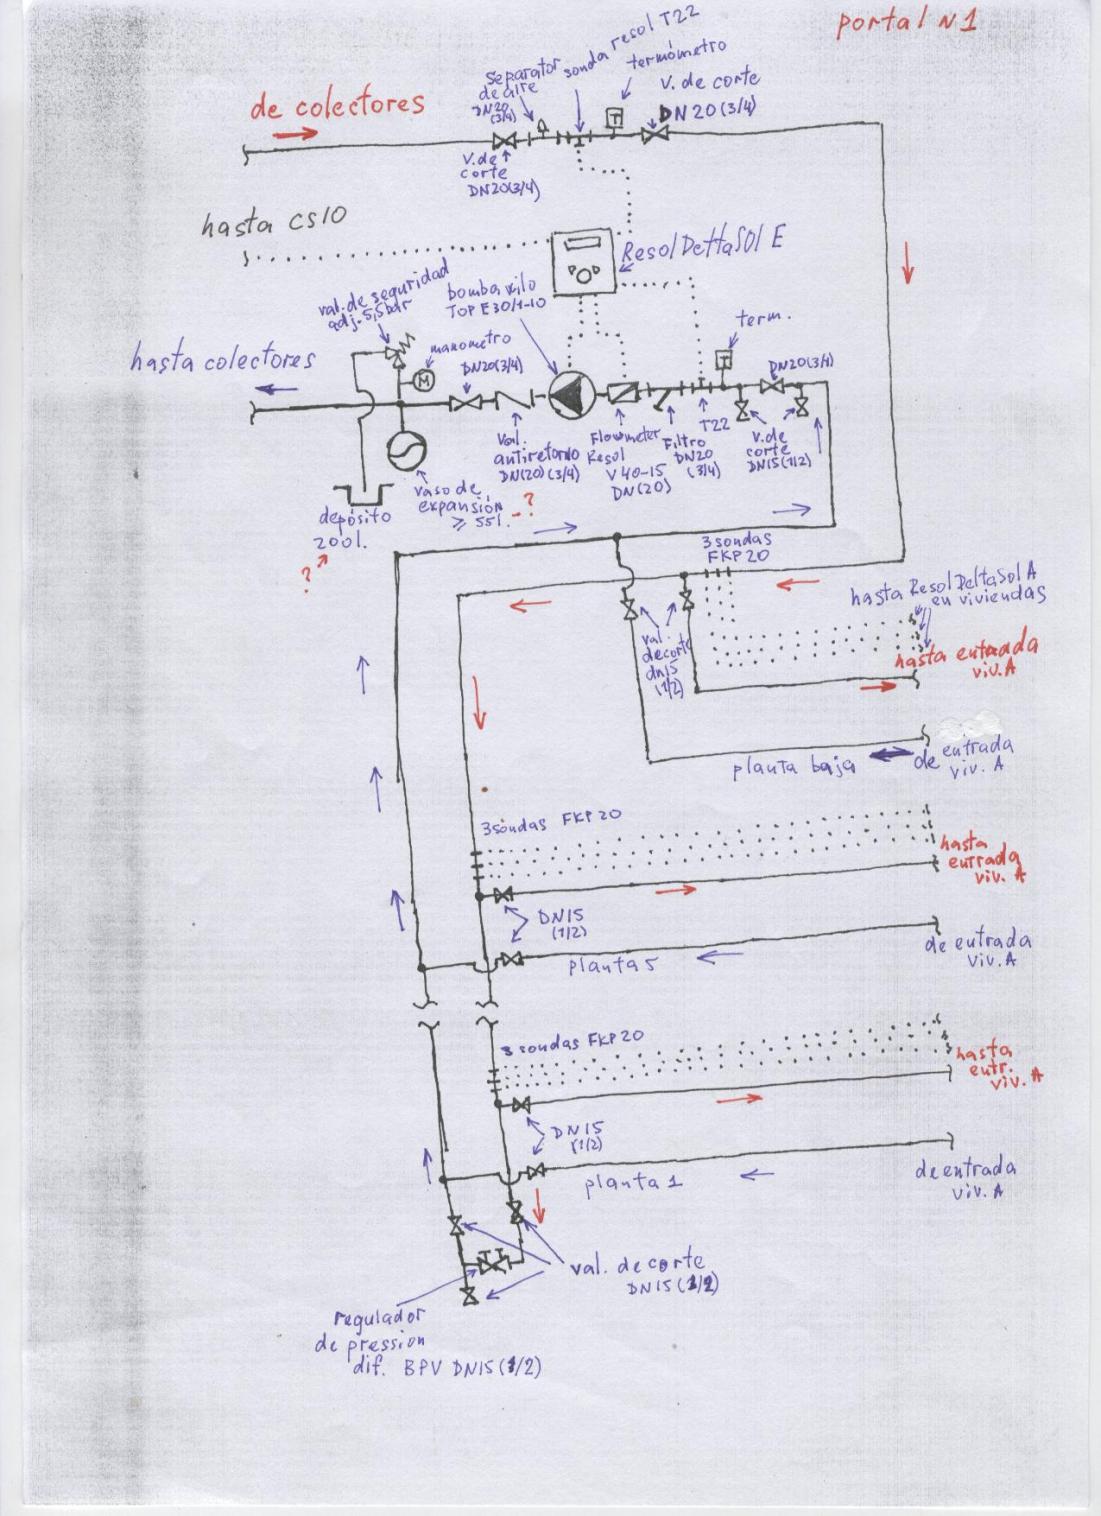 portal N1
sonda resol T22
separator
de aire
DN20
(3/4)
termómetro
v. de corte
DN 20 (3/4)
de colectores
V. de
corte
DN20(3/4)
hasta CS10
Resol DeltaSOl E
val. de seguridad
adj. 5,5 bar
bomba wilo
TOP E 30/1-10
manometro
term.
hasta colectores
DN20(3/4)
DN20(3/4)
M
T
T
val.
antiretorno
DN(20) (3/4)
Flowmeter
Resol
V 40-15
DN(20)
Filtro
DN20
(3/4)
T22
v. de
corte
DN15(1/2)
vaso de
expansión
≥ 55 l. - ?
depósito
200 l.
?
3 sondas
FKP 20
hasta Resol DeltaSol A
en viviendas
val.
de corte
dn15
(1/2)
hasta entrada
viv. A
planta baja
de entrada
viv. A
3 sondas FKP 20
hasta
entrada
viv. A
DN15
(1/2)
planta 5
de entrada
viv. A
3 sondas FKP 20
hasta
entr.
viv. A
DN15
(1/2)
planta 1
de entrada
viv. A
val. de corte
DN15 (1/2)
regulador
de pression
dif. BPV DN15 (1/2)